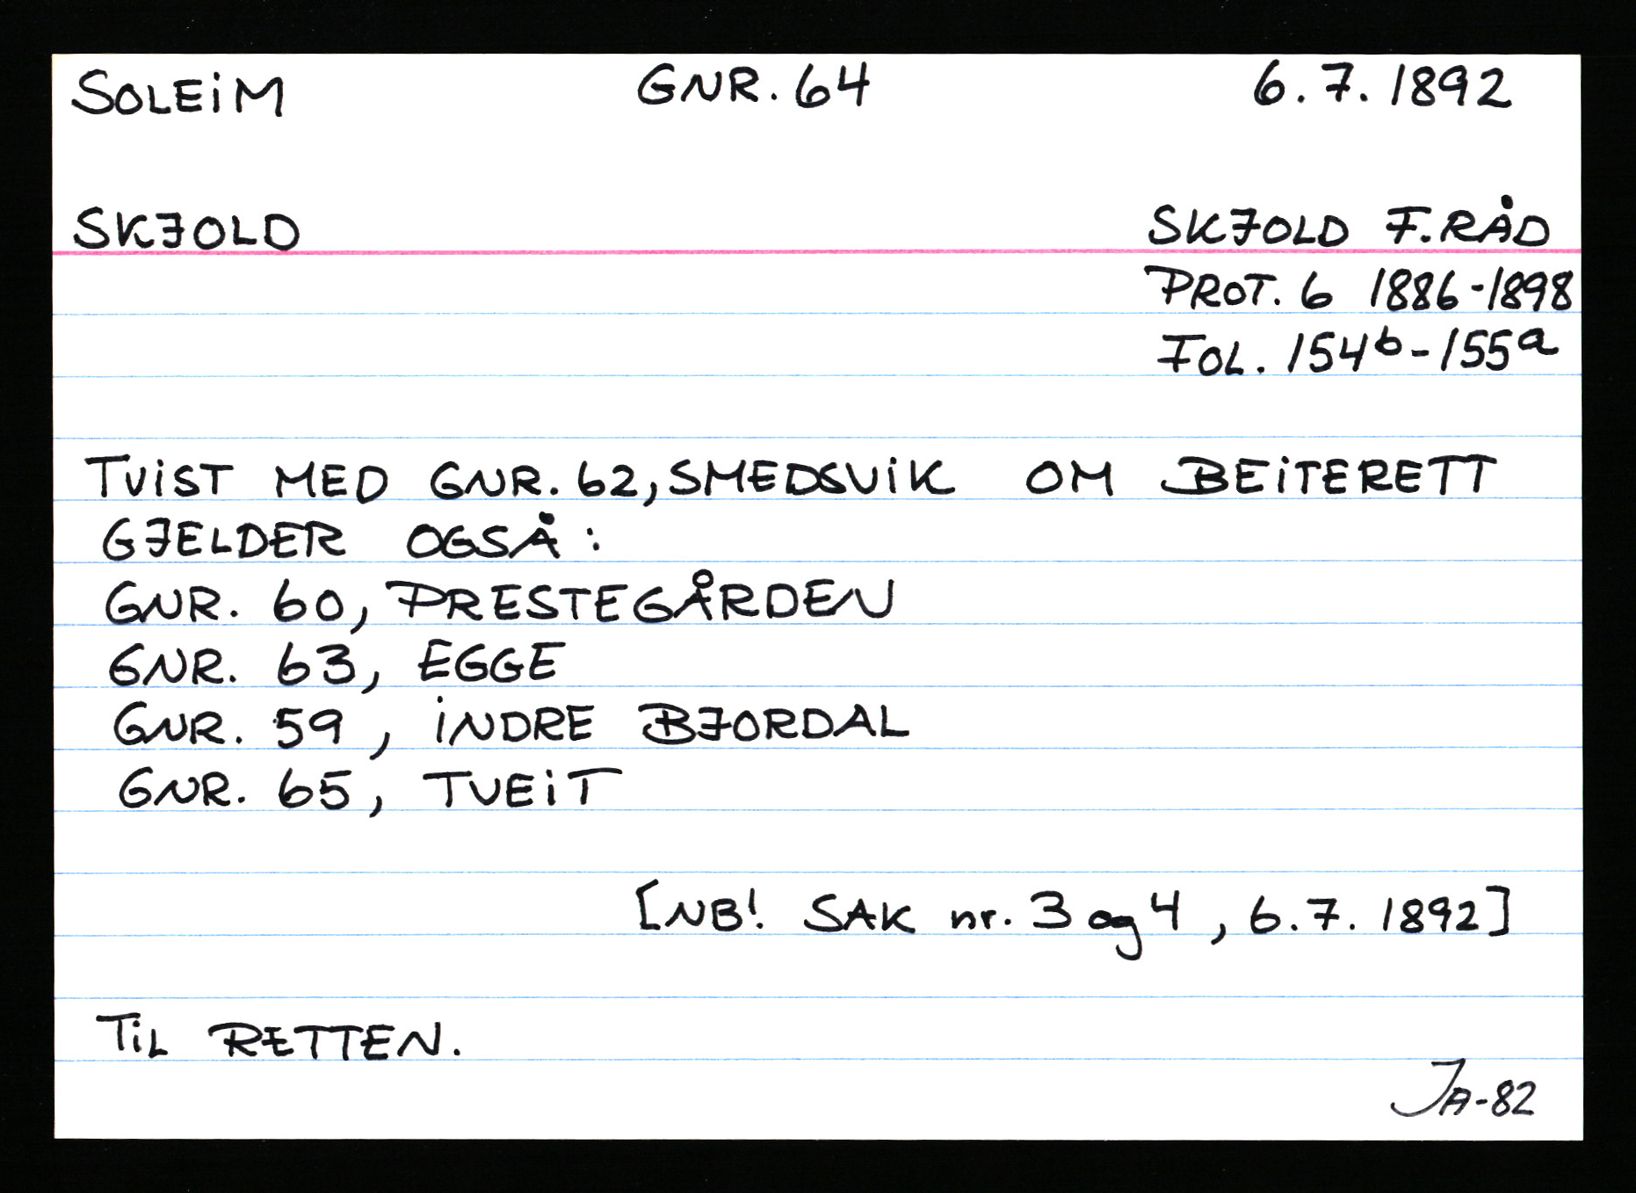 SOLEiM GNR. 64 6.7.1892
SKJOLD SKJOLD F.RÅD
PROT. 6 1886-1898
FOL. 154b-155a
TViST MED GNR. 62, SMEDSViK OM BEiTERETT
GJELDER OGSÅ:
GNR. 60, PRESTEGÅRDEN
GNR. 63, EGGE
GNR. 59, iNDRE BJORDAL
GNR. 65, TVEiT
[NB! SAK nr. 3 og 4, 6.7. 1892]
TiL RETTEN.
JA-82